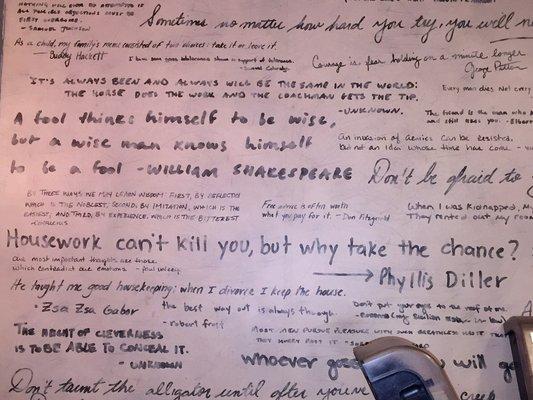 NOTHING WILL EVER BE ATTEMPTED IF
ALL POSSIBLE OBJECTIONS MUST BE
FIRST OVERCOME.
- SAMUEL JOHNSON
Sometimes no matter how hard you try, you will n
As a child, my family's menu consisted of two choices: take it or leave it.
Buddy Hackett
Courage is fear holding on a minute longer
George Patton
IT'S ALWAYS BEEN AND ALWAYS WILL BE THE SAME IN THE WORLD:
THE HORSE DOES THE WORK AND THE COACHMAN GETS THE TIP.
-UNKNOWN.
Every man dies. Not every
A fool thinks himself to be wise,
but a wise man knows himself
to be a fool - WILLIAM SHAKESPEARE
The friend is the man who
and still likes you. -Elber
An invasion of armies can be resisted,
but not an idea whose time has come -
Don't be afraid to
BY THREE WAYS WE MAY LEARN WISDOM: FIRST, BY REFLECTION
WHICH IS THE NOBLEST; SECOND, BY IMITATION, WHICH IS THE
EASIEST; AND THIRD, BY EXPERIENCE, WHICH IS THE BITTEREST
Free advice is often worth
what you pay for it. - Don Fitzgerald
When I was kidnapped, M
They rented out my room
Housework can't kill you, but why take the chance?
Phyllis Diller
Our most important thoughts are those
which contradict our emotions - paul valery
He taught me good housekeeping; when I divorce I keep the house.
• Zsa Zsa Gabor
the best way out is always through.
- robert frost
Don't put your eye to the roof of me.
THE HEIGHT OF CLEVERNESS
IS TO BE ABLE TO CONCEAL IT.
- UNKNOWN
MOST MEN PURSUE PLEASURE WITH SUCH BREATHLESS HASTE THA
THEY HURRY PAST IT.
whoever
will g
Don't taunt the alligator until after you've
creek